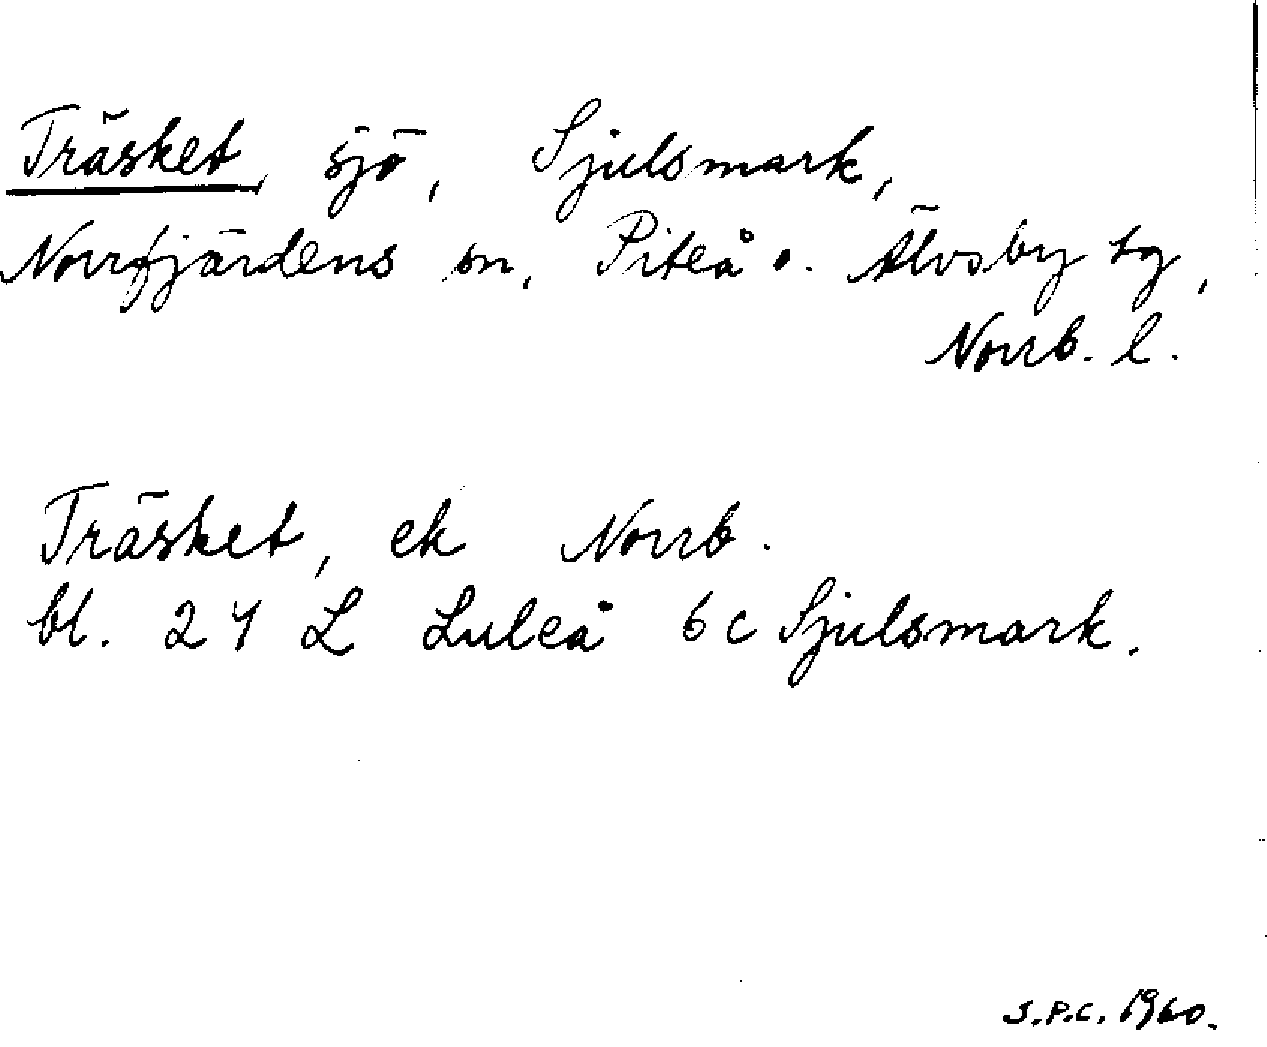 Träsket, sjö, Sjulsmark,
Norrfjärdens sn, Piteå o. Älvsby tg,
Norrb. l.
Träsket, ek Norrb.
bl. 24 L Luleå 6c Sjulsmark.
S.P.C. 1960.